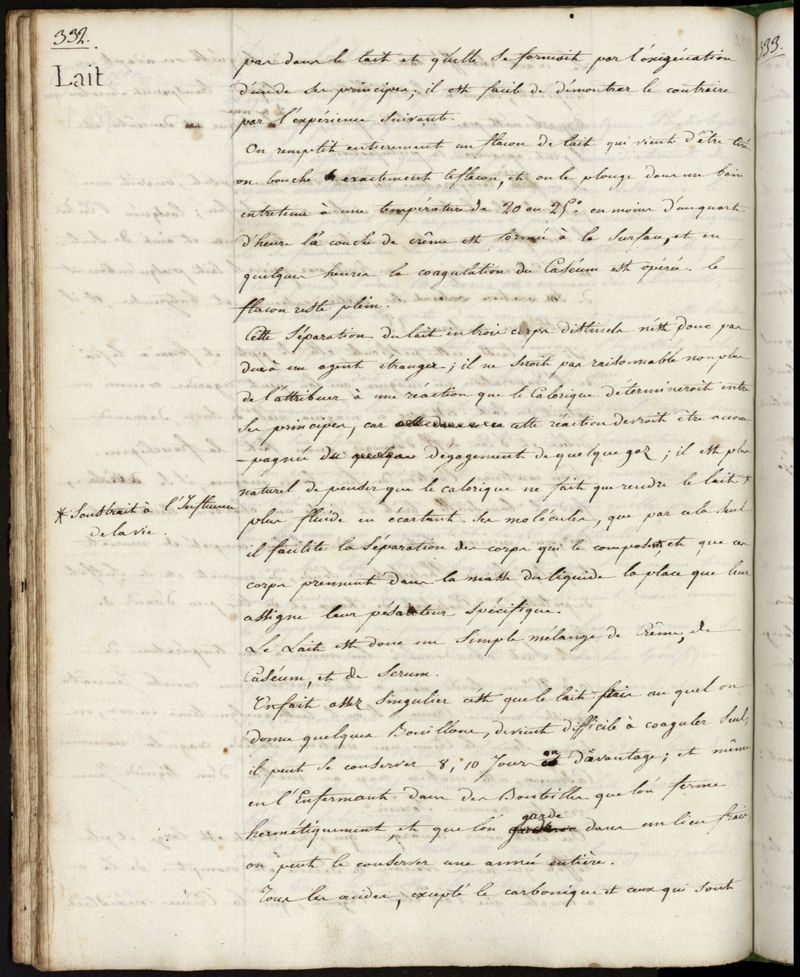 332.
Lait
pas dans le lait et qu'elle se formoit par l'oxigénation
d'un de ses principes; il est facile de démontrer le contraire
par l'experience suivante.
On remplit entierement un flacon de lait qui vient d'être tiré
on bouche exactement le flacon, et on le plonge dans un bain
entretenu à une température de 20 ou 25.° en moins d'un quart
d'heure la couche de crême est formée à la surface, et en
quelques heures la coagulation du Caséum est opérée. le
flacon reste plein.
Cette Séparation du lait en trois corps distincts n'est donc pas
due à un agent étranger; il ne seroit pas raisonnable non plus
de l'attribuer à une réaction que le Calorique détermineroit entre
ses principes, car cette réaction devroit être accom
-pagnée du dégagement de quelque gaz; il est plus
naturel de penser que le calorique ne fait que rendre le lait *
* Soustrait à l'Influence
de la vie.
plus fluide en écartant ses molécules, que par cela seul
il facilite la Séparation des corps qui le composent, et que ces
corps prennent dans la masse du liquide la place que leur
assigne leur pésanteur spécifique.
Le Lait est donc un simple mélange de Crême, de
Caséum, et de Serum.
Un fait assez singulier c'est que le lait frais au quel on
donne quelques Bouillons, devient difficile à coaguler seul;
il peut se conserver 8, 10 Jours ou d'avantage; et même
en l'Enfermant dans des Bouteilles que l'on ferme
hermétiquement, et que l'on garde dans un lieu frais
on peut le conserver une année entière.
Tous les acides, excepté le carbonique et ceux qui sont
333.